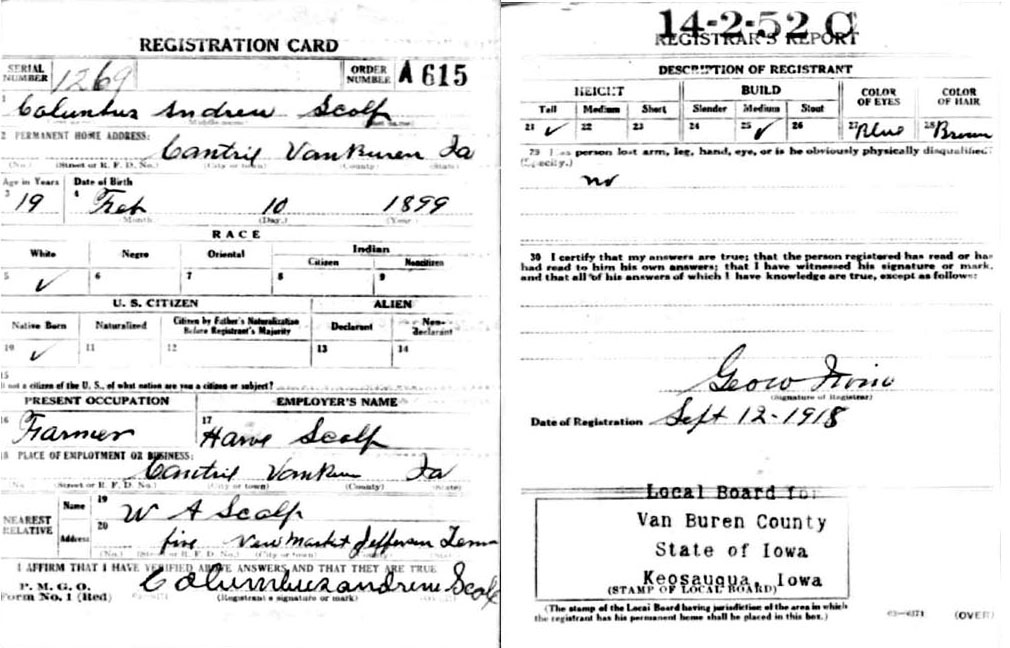 REGISTRATION CARD
SERIAL NUMBER 1269 ORDER NUMBER A 615
1 Columbus Andrew Scalf
2 PERMANENT HOME ADDRESS:
Cantril Van Buren Ia
(No.) (Street or R. F. D. No.) (City or town) (County) (State)
Age in Years Date of Birth
3 19 4 Feb 10 1899
(Month.) (Day.) (Year.)
RACE
White Negro Oriental Indian
Citizen Noncitizen
5 ✓ 6 7 8 9
U. S. CITIZEN ALIEN
Native Born Naturalized Citizen by Father's Naturalization Before Registrant's Majority Declarant Non-declarant
10 ✓ 11 12 13 14
15
If not a citizen of the U. S., of what nation are you a citizen or subject?
PRESENT OCCUPATION EMPLOYER'S NAME
16 Farmer 17 Harve Scalf
18 PLACE OF EMPLOYMENT OR BUSINESS:
Cantril Van Buren Ia
(No.) (Street or R. F. D. No.) (City or town) (County) (State)
NEAREST RELATIVE Name 19 W A Scalf
Address 20 five New Market Jefferson Tenn
(No.) (Street or R. F. D. No.) (City or town)
I AFFIRM THAT I HAVE VERIFIED ABOVE ANSWERS AND THAT THEY ARE TRUE
P. M. G. O.
Form No. 1 (Red) Columbus andrew Scalf
(Registrant's signature or mark)
14-2-52 C
REGISTRAR'S REPORT
DESCRIPTION OF REGISTRANT
HEIGHT BUILD COLOR OF EYES COLOR OF HAIR
Tall Medium Short Slender Medium Stout
21 ✓ 22 23 24 25 ✓ 26 27 Blue 28 Brown
29 Has person lost arm, leg, hand, eye, or is he obviously physically disqualified?
(Specify.)
no
30 I certify that my answers are true; that the person registered has read or has
had read to him his own answers; that I have witnessed his signature or mark,
and that all of his answers of which I have knowledge are true, except as follows:
Geo W
(Signature of Registrar)
Date of Registration Sept 12-1918
Local Board for
Van Buren County
State of Iowa
Keosauqua, Iowa
(STAMP OF LOCAL BOARD)
(The stamp of the Local Board having jurisdiction of the area in which
the registrant has his permanent home shall be placed in this box.)
03—6171 (OVER)